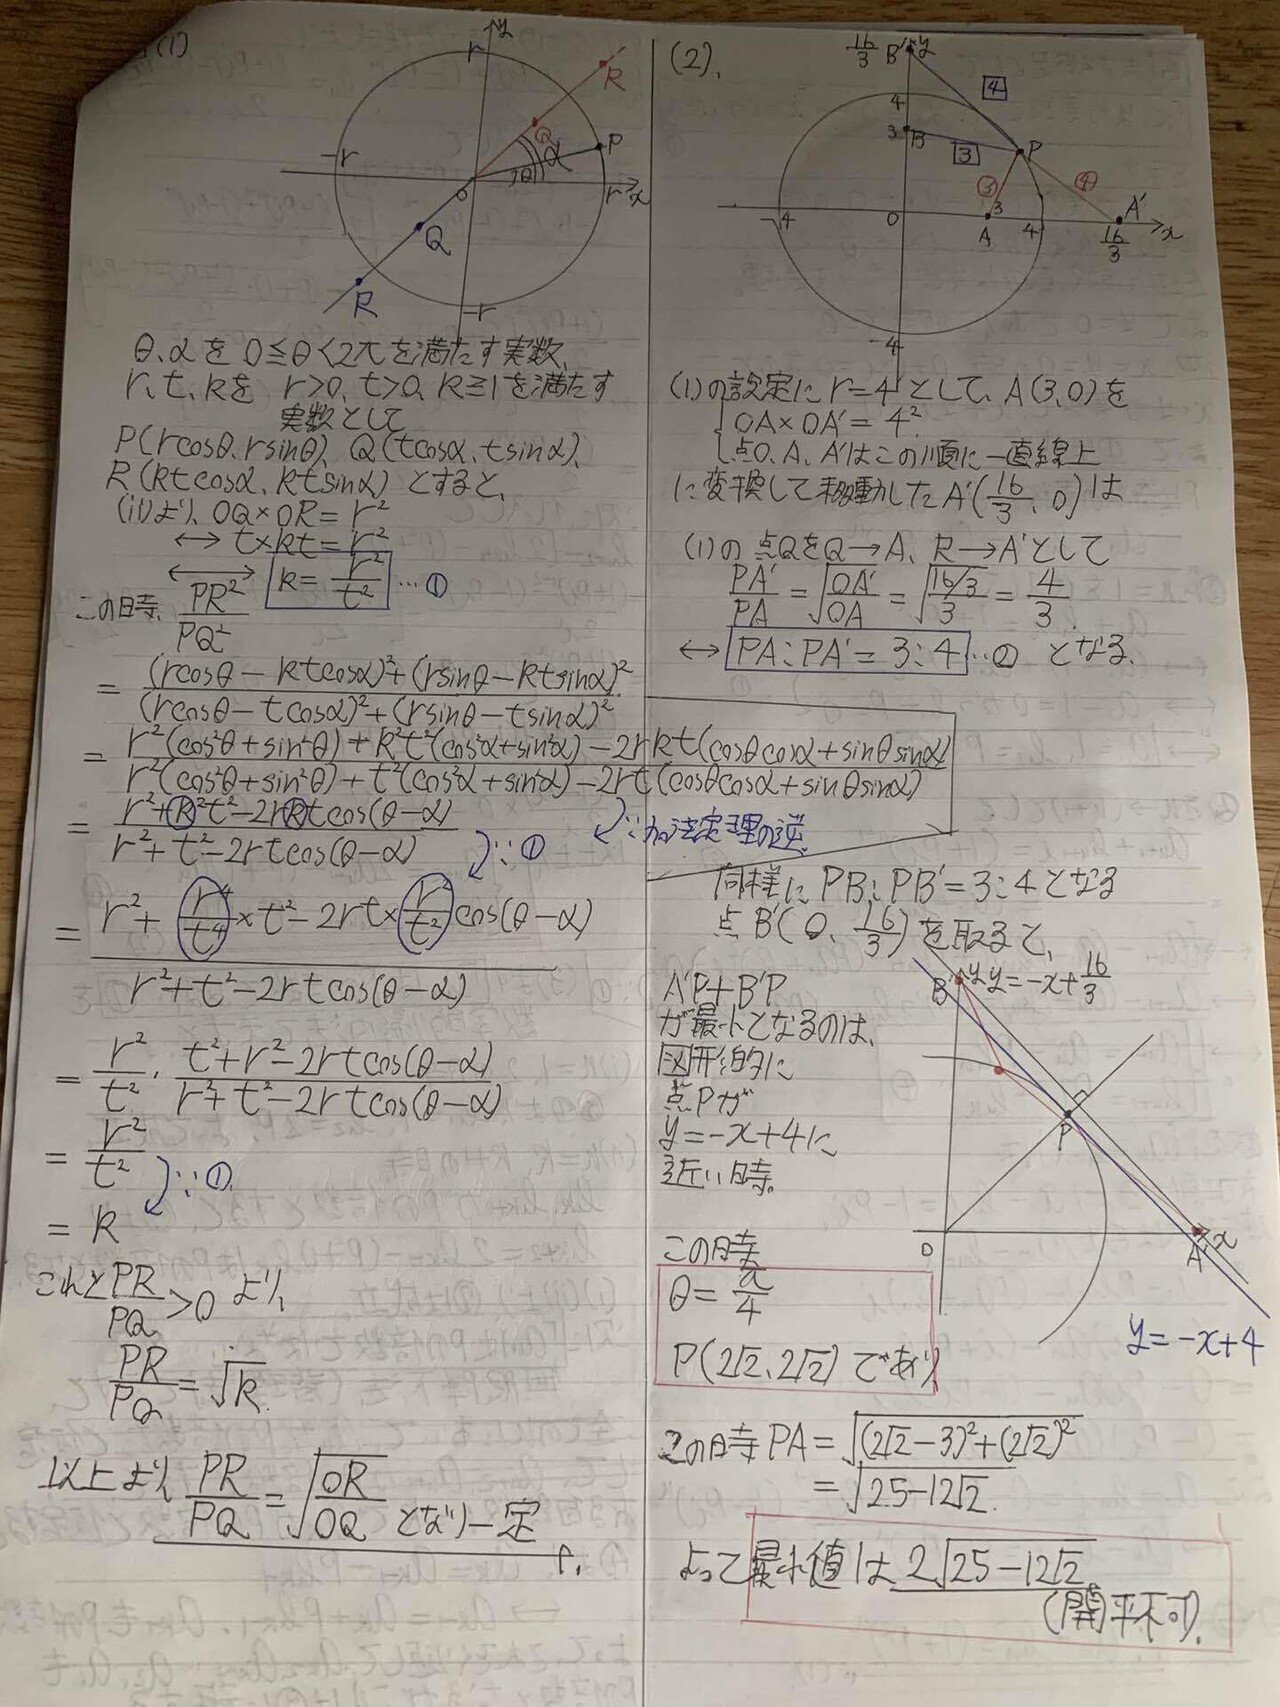 (1)
y
r
R
Q
α
P
θ
-r
O
r
x
Q
R
-r
θ、αを 0≦θ<2πを満たす実数、
r、t、kを r>0、t>0、k≧1を満たす
実数として
P(rcosθ、rsinθ)、Q(tcosα、tsinα)、
R(ktcosα、ktsinα) とすると、
(ii)より、OQ×OR=r²
↔ t×kt=r²
↔ k=r²/t² …①
この時、PR²/PQ²
= {(rcosθ-ktcosα)²+(rsinθ-ktsinα)²}/{(rcosθ-tcosα)²+(rsinθ-tsinα)²}
= {r²(cos²θ+sin²θ)+k²t²(cos²α+sin²α)-2rkt(cosθcosα+sinθsinα)}/{r²(cos²θ+sin²θ)+t²(cos²α+sin²α)-2rt(cosθcosα+sinθsinα)}
= {r²+k²t²-2rktcos(θ-α)}/{r²+t²-2rtcos(θ-α)}
∵加法定理の逆
∵①
= {r²+r⁴/t⁴×t²-2rt×r²/t²cos(θ-α)}/{r²+t²-2rtcos(θ-α)}
= r²/t²・{t²+r²-2rtcos(θ-α)}/{r²+t²-2rtcos(θ-α)}
= r²/t²
∵①
= k
これとPR/PQ>0 より、
PR/PQ=√k
以上より、PR/PQ=√(OR/OQ) となり一定
(2)、
16/3 B' y
4
4
3 B
3
P
③
④
-4
O
3
A
4
A'
16/3
x
-4
(1)の設定に r=4 として、A(3,0)を
OA×OA'=4²
点O、A、A'はこの順に一直線上
に変換して移動したA'(16/3、0)は
(1)の 点QをQ→A、R→A'として
PA'/PA=√(OA'/OA)=√((16/3)/3)=4/3
↔ PA:PA'=3:4 …② となる。
同様に PB:PB'=3:4となる
点B'(0、16/3)を取ると、
A'P+B'P
が最小となるのは、
図形的に
点Pが
y=-x+4に
近い時。
B'
y
y=-x+16/3
P
O
x
A'
y=-x+4
この時
θ=π/4
P(2√2、2√2)であり
この時 PA=√((2√2-3)²+(2√2)²)
=√(25-12√2)
よって最小値は 2√(25-12√2)
(開平不可)。